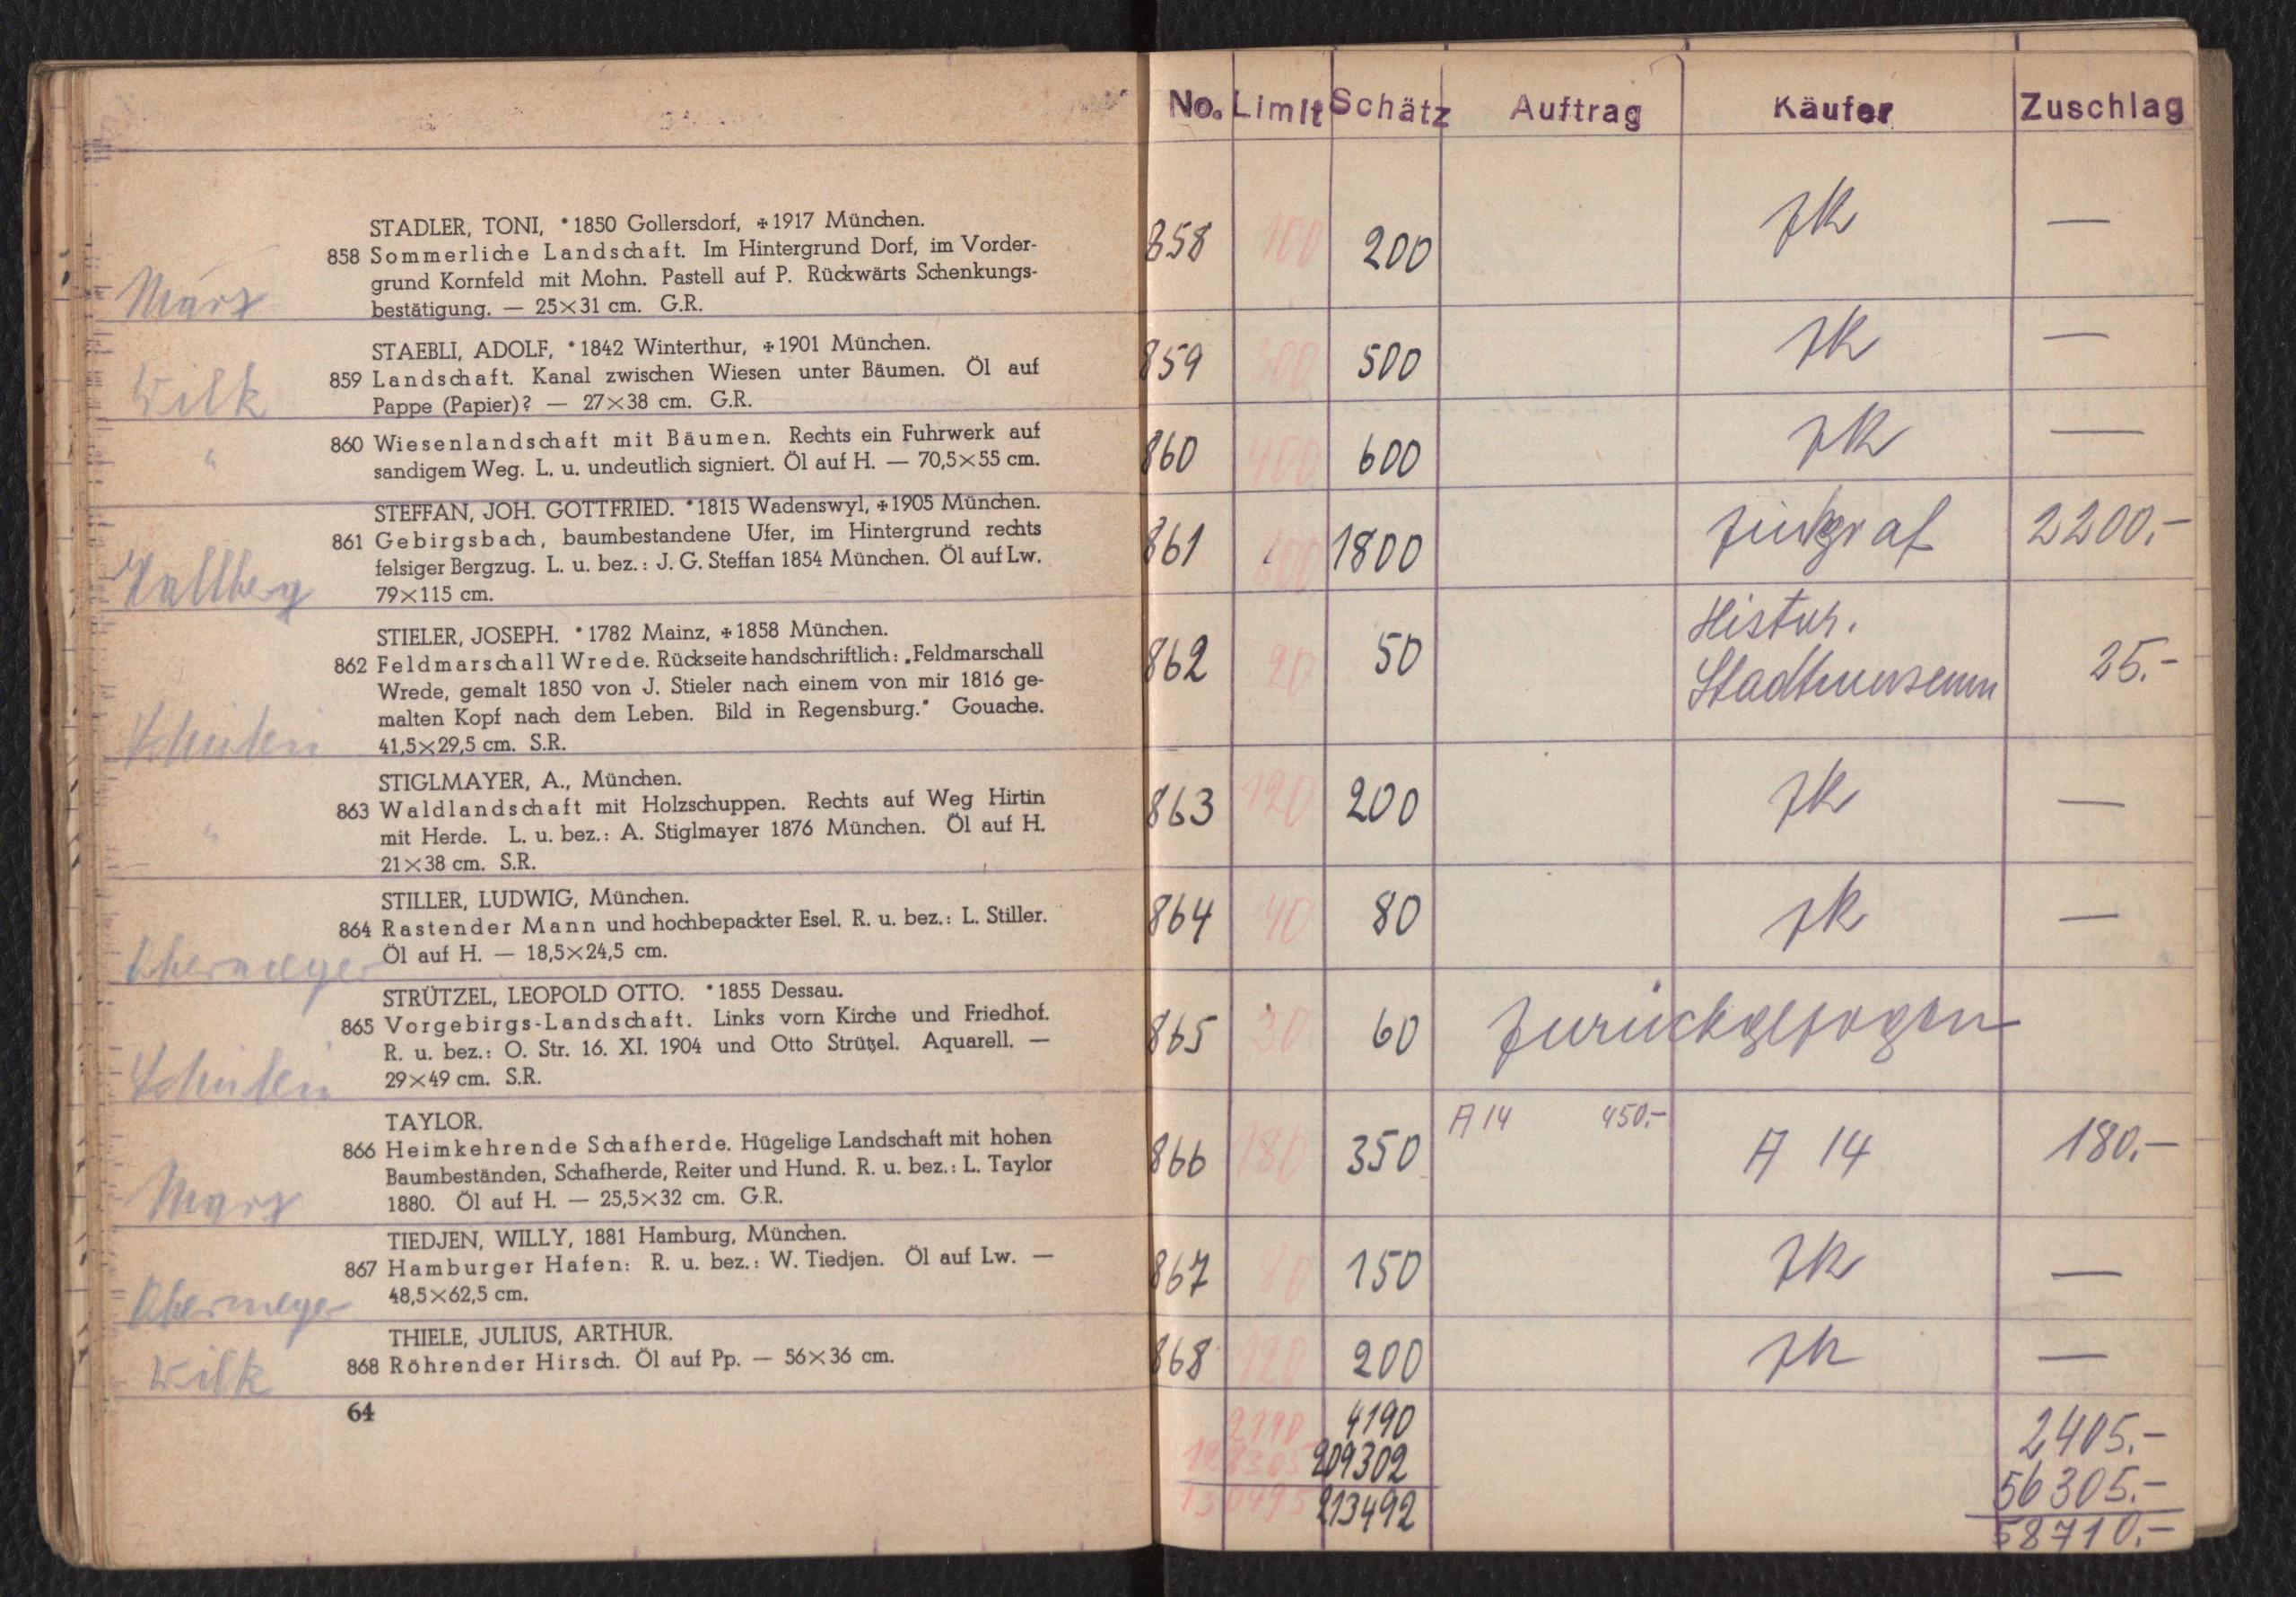 No. Limit Schätz Auftrag Käufer Zuschlag
STADLER, TONI, *1850 Gollersdorf, ✠1917 München.
858 Sommerliche Landschaft. Im Hintergrund Dorf, im Vorder-
grund Kornfeld mit Mohn. Pastell auf P. Rückwärts Schenkungs-
bestätigung. — 25×31 cm. G.R.
März
858 100 200 zk —
STAEBLI, ADOLF, *1842 Winterthur, ✠1901 München.
859 Landschaft. Kanal zwischen Wiesen unter Bäumen. Öl auf
Pappe (Papier)? — 27×38 cm. G.R.
Wilk
859 500 zk —
860 Wiesenlandschaft mit Bäumen. Rechts ein Fuhrwerk auf
sandigem Weg. L. u. undeutlich signiert. Öl auf H. — 70,5×55 cm.
"
860 400 600 zk —
STEFFAN, JOH. GOTTFRIED. *1815 Wadenswyl, ✠1905 München.
861 Gebirgsbach, baumbestandene Ufer, im Hintergrund rechts
felsiger Bergzug. L. u. bez.: J. G. Steffan 1854 München. Öl auf Lw.
79×115 cm.
861 1800 Zinkgraf 2200.-
STIELER, JOSEPH. *1782 Mainz, ✠1858 München.
862 Feldmarschall Wrede. Rückseite handschriftlich: „Feldmarschall
Wrede, gemalt 1850 von J. Stieler nach einem von mir 1816 ge-
malten Kopf nach dem Leben. Bild in Regensburg." Gouache.
41,5×29,5 cm. S.R.
Schülein
862 20 50 Histor.
Stadtmuseum 25.-
STIGLMAYER, A., München.
863 Waldlandschaft mit Holzschuppen. Rechts auf Weg Hirtin
mit Herde. L. u. bez.: A. Stiglmayer 1876 München. Öl auf H.
21×38 cm. S.R.
"
863 120 200 zk —
STILLER, LUDWIG, München.
864 Rastender Mann und hochbepackter Esel. R. u. bez.: L. Stiller.
Öl auf H. — 18,5×24,5 cm.
Obermeyer
864 40 80 zk —
STRÜTZEL, LEOPOLD OTTO. *1855 Dessau.
865 Vorgebirgs-Landschaft. Links vorn Kirche und Friedhof.
R. u. bez.: O. Str. 16. XI. 1904 und Otto Strützel. Aquarell. —
29×49 cm. S.R.
Schülein
865 30 60 zurückgezogen
TAYLOR.
866 Heimkehrende Schafherde. Hügelige Landschaft mit hohen
Baumbeständen, Schafherde, Reiter und Hund. R. u. bez.: L. Taylor
1880. Öl auf H. — 25,5×32 cm. G.R.
März
866 180 350 A 14 450.- A 14 180.-
TIEDJEN, WILLY, 1881 Hamburg, München.
867 Hamburger Hafen: R. u. bez.: W. Tiedjen. Öl auf Lw. —
48,5×62,5 cm.
Obermeyer
867 80 150 zk —
THIELE, JULIUS, ARTHUR.
868 Röhrender Hirsch. Öl auf Pp. — 56×36 cm.
Wilk
868 120 200 zk —
64
2190 4190 2405.-
128305 209302 56305.-
130495 213492 58710.-